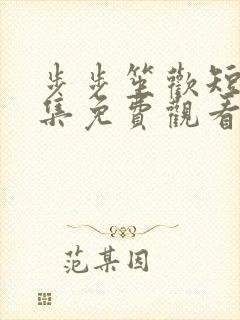 步步笙歡短
集免費觀看
范某因